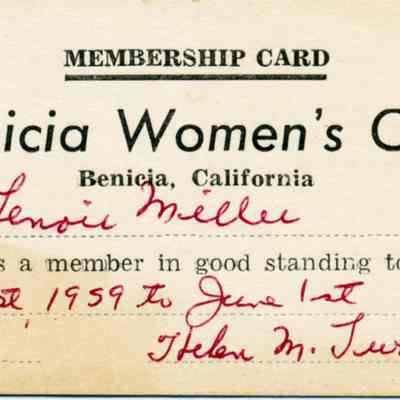 MEMBERSHIP CARD
icia Women's C
Benicia, California
Lenoir Miller
s a member in good standing to
st 1959 to June 1st
Helen M.